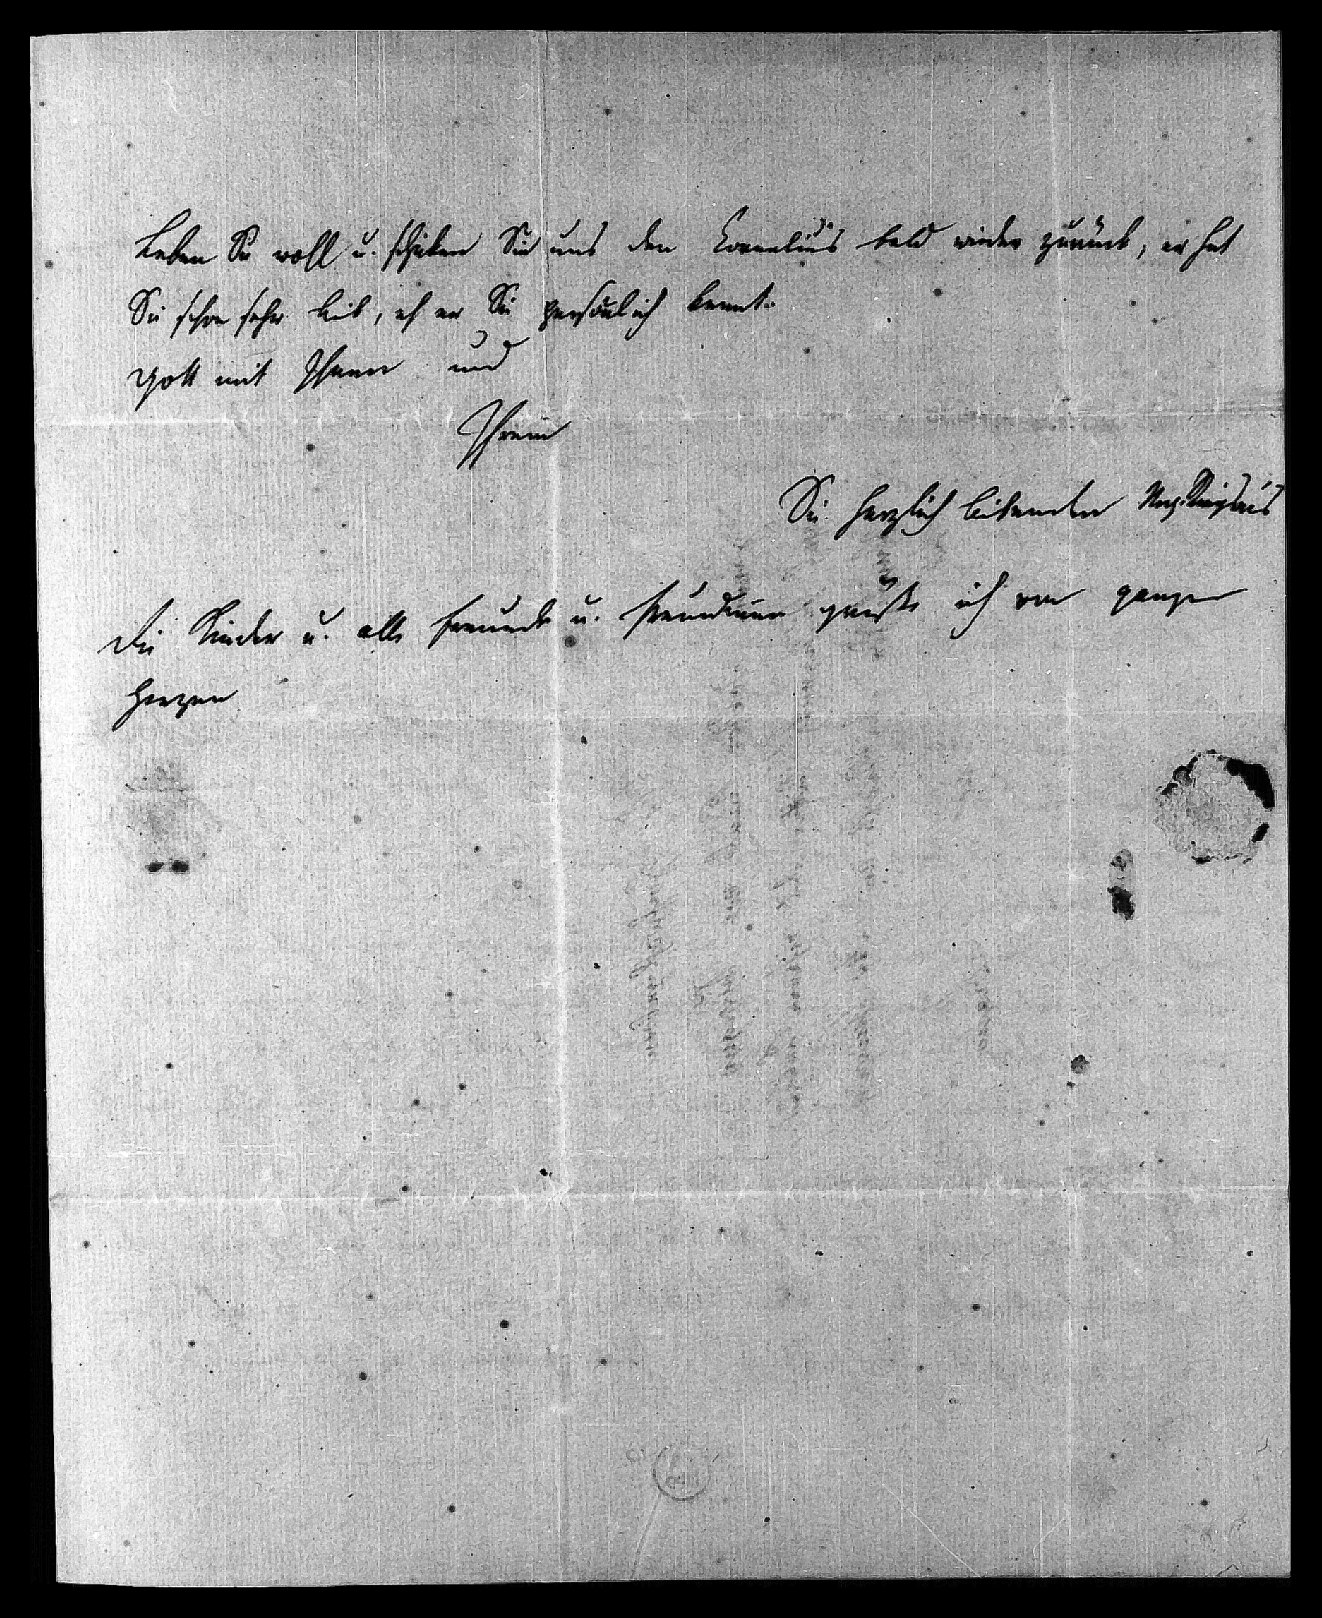 Leben Sie wohl u. schicken Sie uns den Cornelius bald wieder zurück, er hat
Sie schon sehr lieb, eh er Sie persönlich kennt.
Gott mit Ihnen und
Ihrem
Sie herzlich liebenden
Die Kinder u. alle Freunde u. Freundinnen grüße ich von ganzem
Herzen